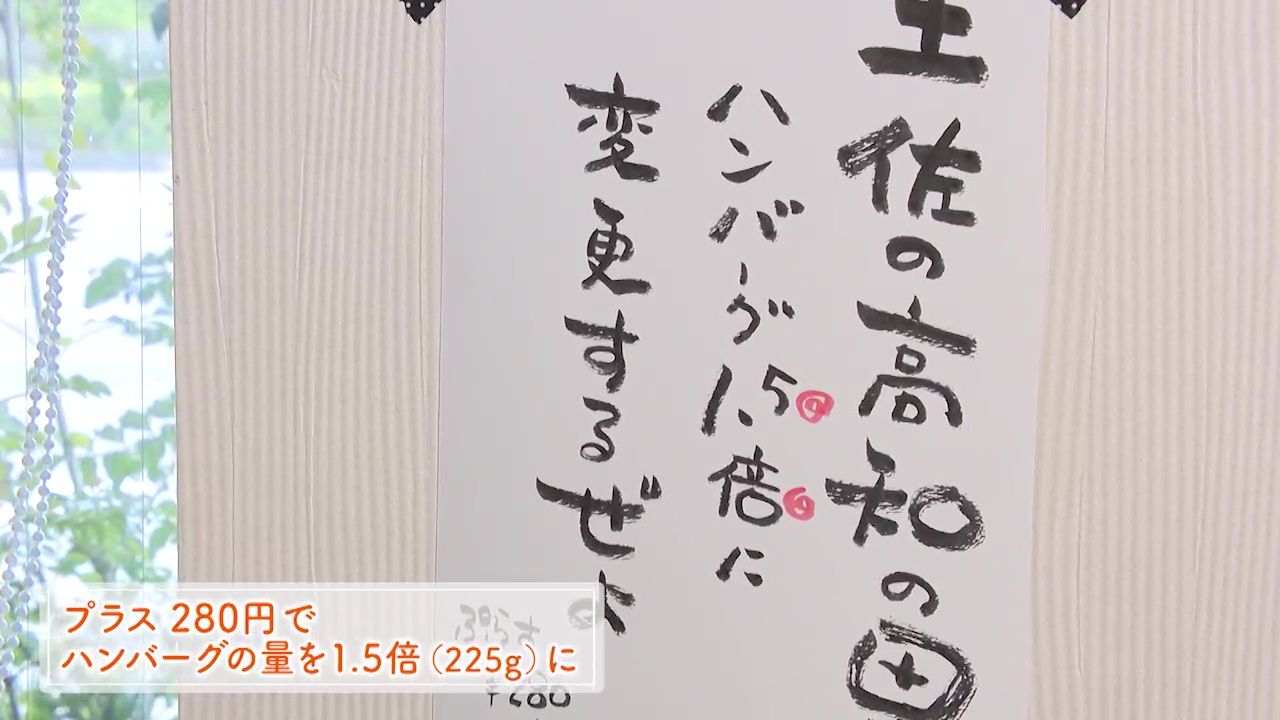 土佐の高知の田
ハンバーグ1.5倍に
変更するぜよ
ぷらす
¥280
プラス280円で
ハンバーグの量を1.5倍(225g)に